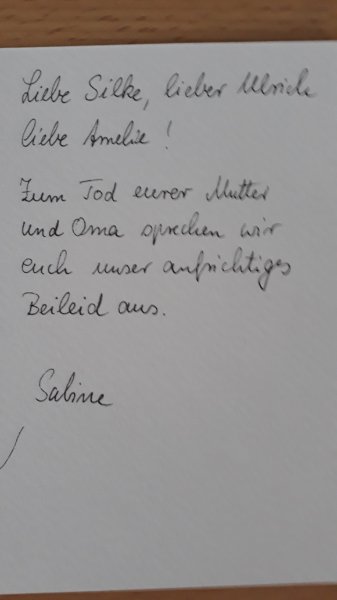 Liebe Silke, lieber Ulrich
liebe Amelie!
Zum Tod eurer Mutter
und Oma sprechen wir
euch unser aufrichtiges
Beileid aus.
Sabine